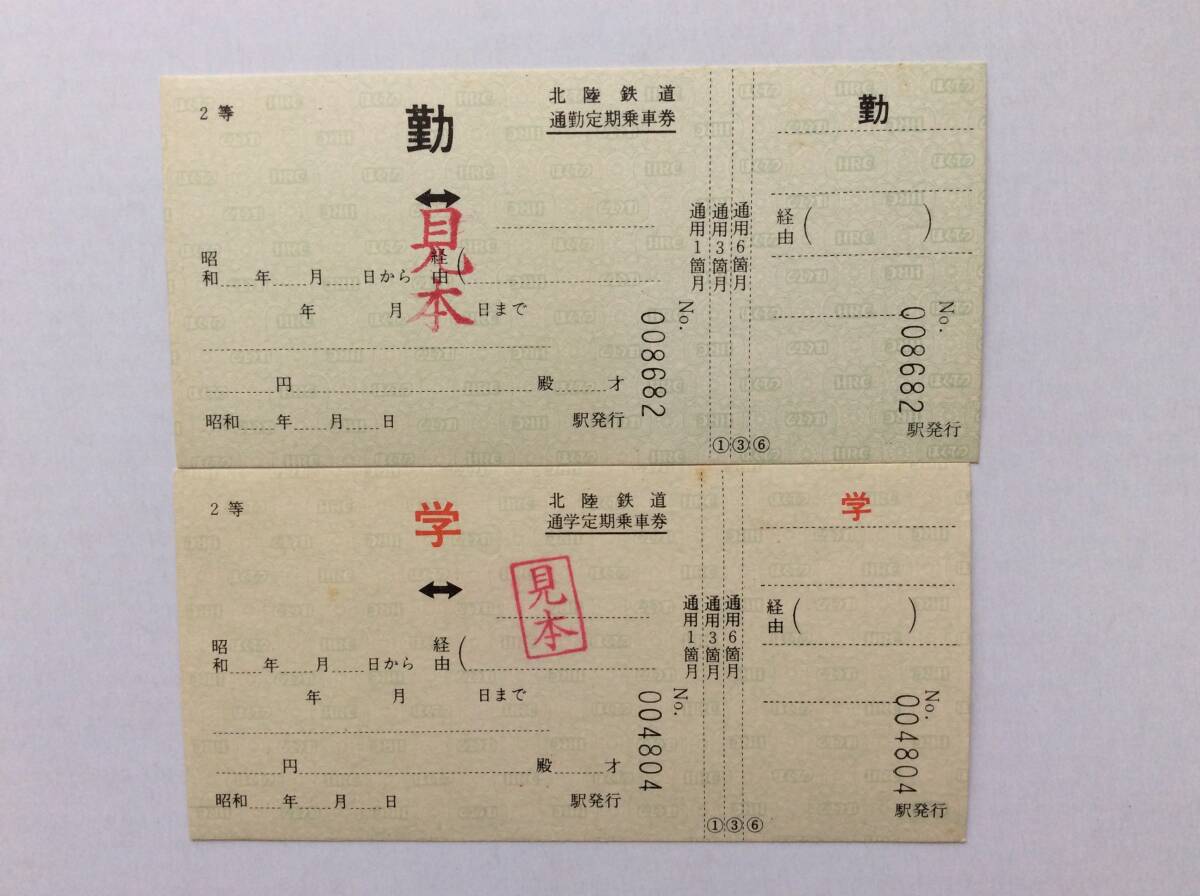 2等
勤
北陸鉄道
通勤定期乗車券
見本
昭和 年 月 日から
経由(
年 月 日まで
円 殿 才
昭和 年 月 日 駅発行
No. 008682
通用1箇月
通用3箇月
通用6箇月
①③⑥
勤
経由( )
No. 008682
駅発行
2等
学
北陸鉄道
通学定期乗車券
見本
昭和 年 月 日から
経由(
年 月 日まで
円 殿 才
昭和 年 月 日 駅発行
No. 004804
通用1箇月
通用3箇月
通用6箇月
①③⑥
学
経由( )
No. 004804
駅発行